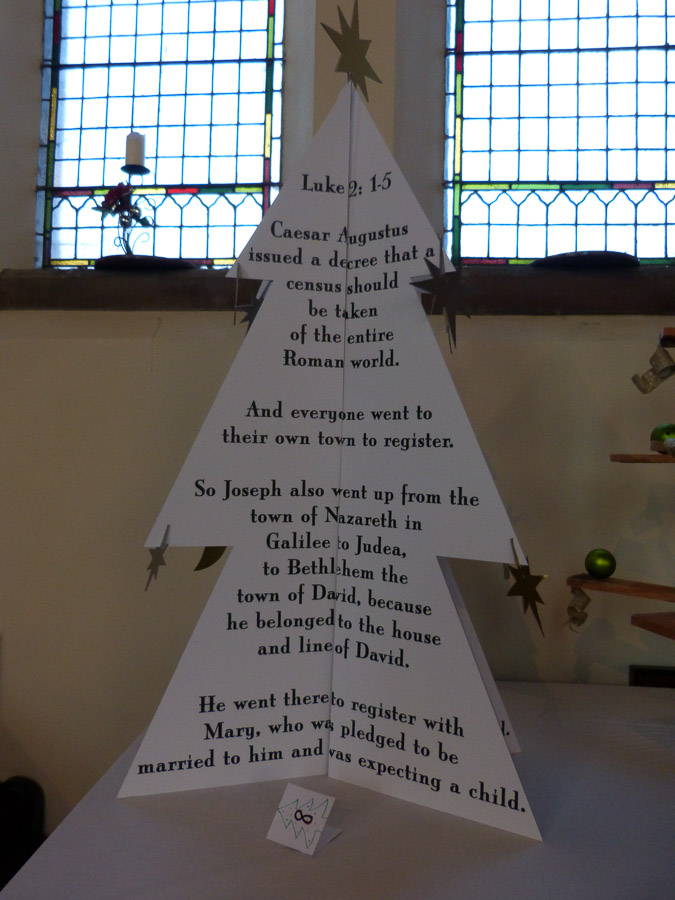 Luke 2: 1-5
Caesar Augustus
issued a decree that a
census should
be taken
of the entire
Roman world.
And everyone went to
their own town to register.
So Joseph also went up from the
town of Nazareth in
Galilee to Judea,
to Bethlehem the
town of David, because
he belonged to the house
and line of David.
He went there to register with
Mary, who was pledged to be
married to him and was expecting a child.
8